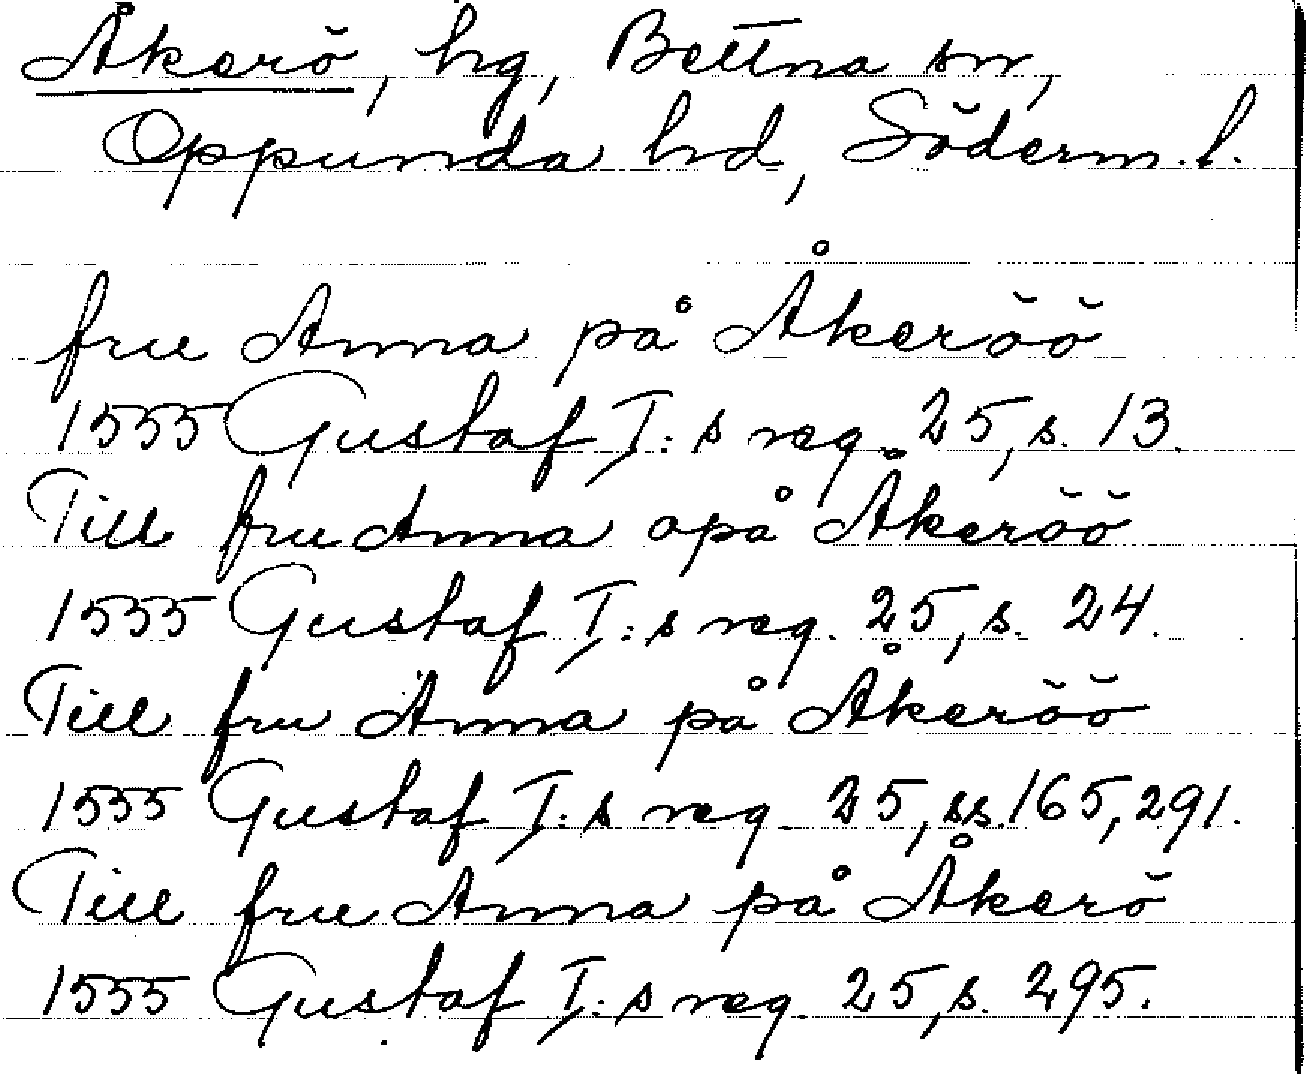 Åkerö, hg, Bettna sn,
Oppunda hd, Söderm. l.
frue Anna på Åkeröö
1555 Gustaf I:s reg. 25, s. 13.
Till frue Anna opå Åkeröö
1555 Gustaf I:s reg. 25, s. 24.
Till fru Anna på Åkeröö
1555 Gustaf I:s reg. 25, ss. 165, 291.
Till frue Anna på Åkerö
1555 Gustaf I:s reg. 25, s. 295.